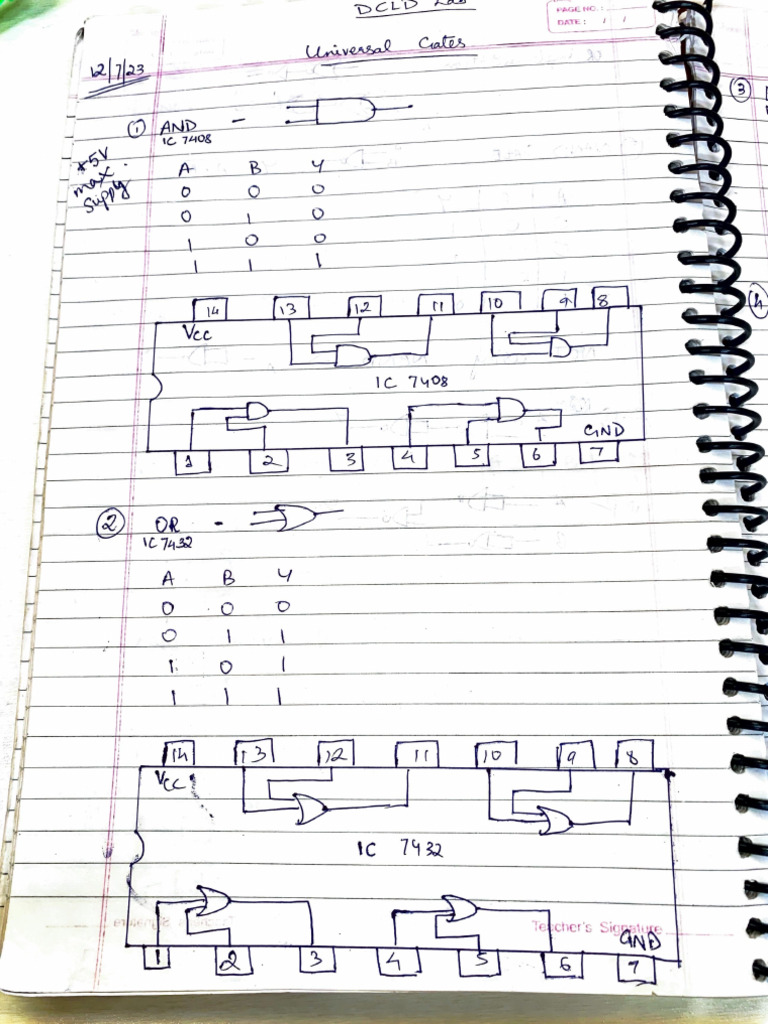 DCLD Lab
PAGE NO.:
DATE: / /
Universal Gates
12/7/23
① AND -
IC 7408
+5V
max.
supply
A B Y
0 0 0
0 1 0
1 0 0
1 1 1
14 13 12 11 10 9 8
VCC
IC 7408
GND
1 2 3 4 5 6 7
② OR -
IC 7432
A B Y
0 0 0
0 1 1
1 0 1
1 1 1
14 13 12 11 10 9 8
VCC
IC 7432
Teacher's Signature
GND
1 2 3 4 5 6 7
③
④